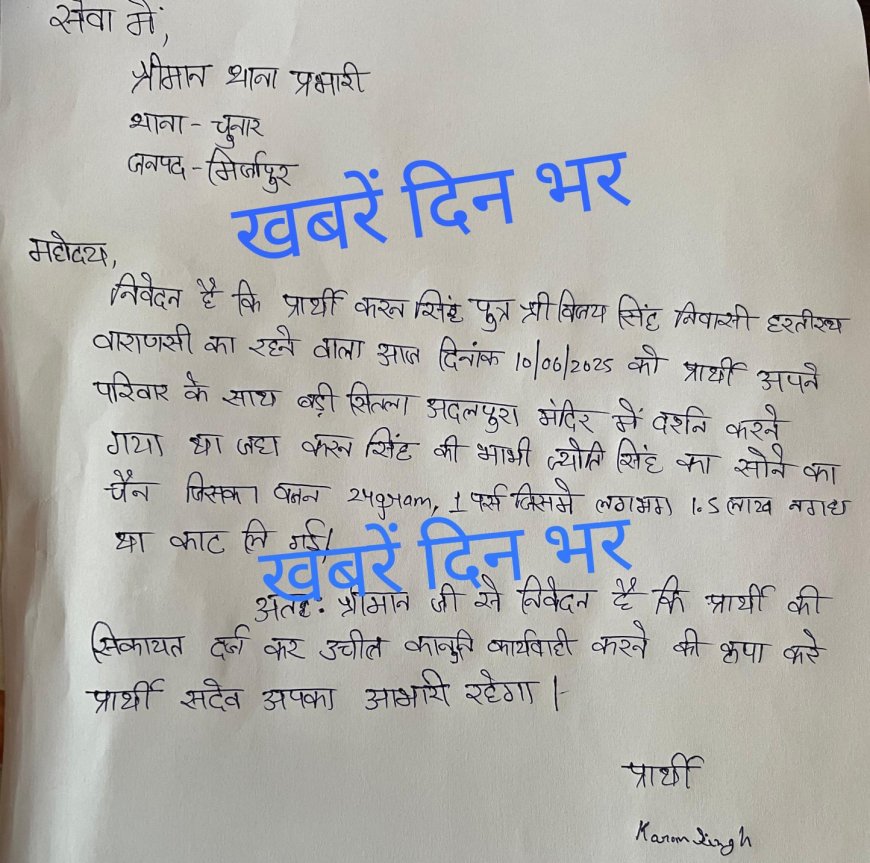 सेवा में,
श्रीमान थाना प्रभारी
थाना - चुनार
जनपद - मिर्जापुर
खबरें दिन भर
महोदय,
निवेदन है कि प्रार्थी करन सिंह पुत्र श्री विजय सिंह निवासी हरतीरथ
वाराणसी का रहने वाला आज दिनांक 10/06/2025 को प्रार्थी अपने
परिवार के साथ बड़ी सितला अदलपुरा मंदिर में दर्शन करने
गया था जहा करन सिंह की भाभी ज्योति सिंह का सोने का
चैन जिसका वजन 24gram, 1 पर्स जिसमे लगभग 1.5 लाख नगद
था काट लि गई।
खबरें दिन भर
अतह: श्रीमान जी से निवेदन है कि प्रार्थी की
सिकायत दर्ज कर उचीत कानुनि कार्यवाही करने की कृपा करे
प्रार्थी सदेव अपका आभारी रहेगा।-
प्रार्थी
Karan Singh